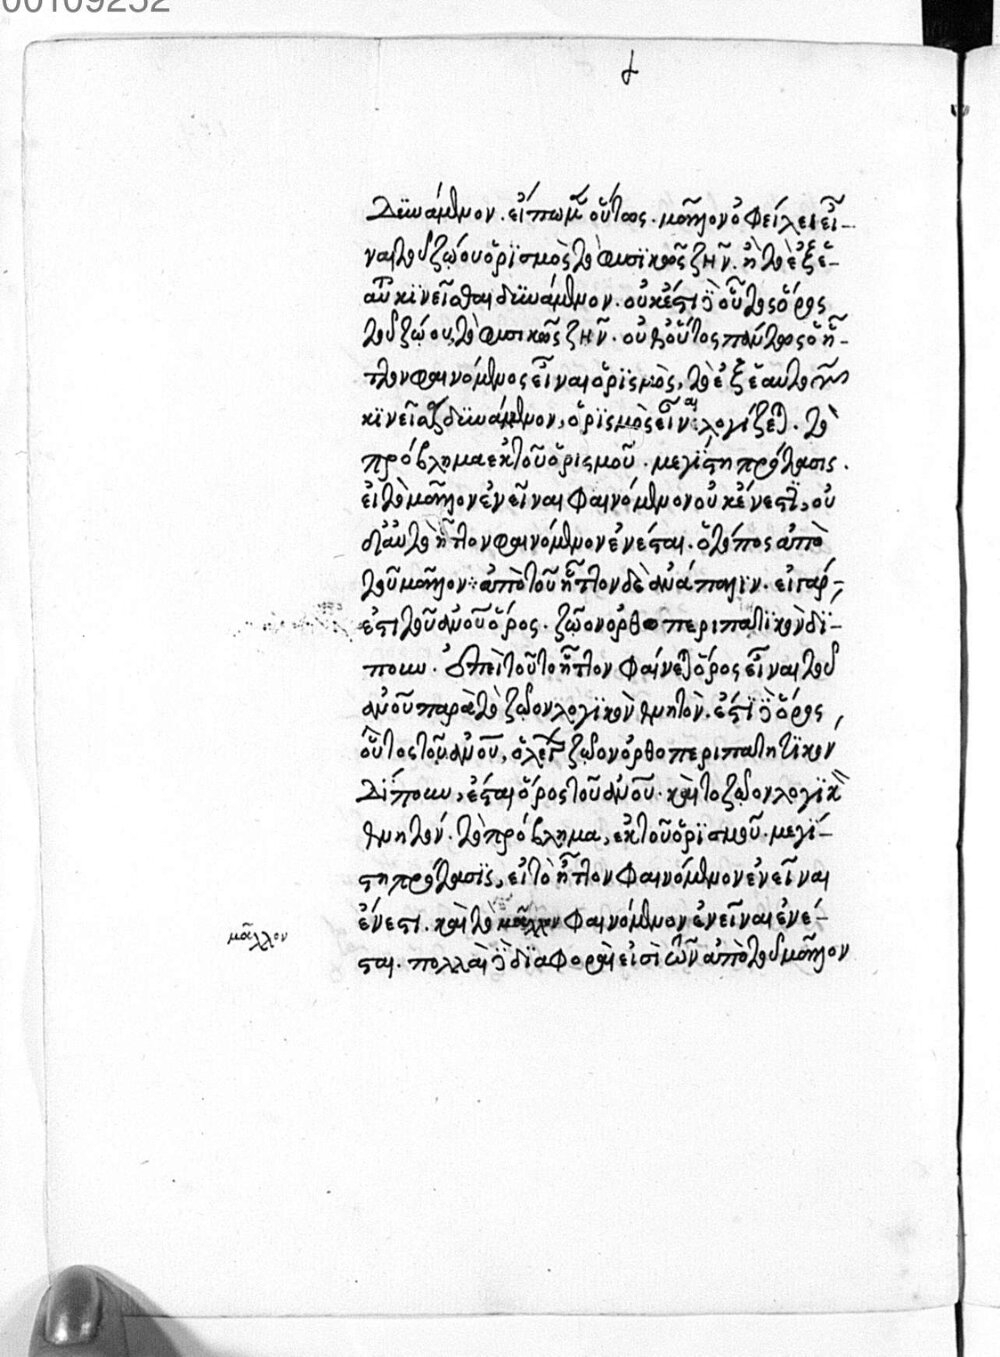 00109252
δ
Δϊϋάμενον. εἴπωμεν οὕτως. μᾶλλον ὀφείλει εἶ-
ναι τοῦ ζώου ὁρϊσμὸς τὸ φυσϊκῶς ζῆν. ἢ τὸ ἐξ ἑ-
κϊνεῖσθαι δϋνάμενον. οὐκ ἔστι δὲ οὗτος ὅρος
τοῦ ζώου, τὸ φυσικῶς ζῆν. οὐδ' οὗτος πάντως ὁ ἧτ-
τον φαινόμενος εἶναι ὁρϊσμὸς, τὸ ἐξ ἑαυτοῦ
κϊνεῖσθαι δϋνάμενον, ὁρϊσμὸς εἶναι λογίζεται. τὸ
πρόβλημα ἐκ τοῦ ὁρισμοῦ. μεγίστη πρότασις.
εἰ τὸ μᾶλλον ἐνεῖναι φαινόμενον οὐκ ἔνεστι, οὐ
δ' αὖ τὸ ἧττον φαινόμενον ἐνέσται. ὁ τόπος ἀπὸ
τοῦ μᾶλλον. ἀπὸ τοῦ ἧττον δὲ ἀνάπαλιν. εἰ γάρ
ἐστι τοῦ ἀνοῦ ὅρος. ζῶον ὀρθοπεριπατϊκὸν δί-
πουν. ὅπερ τοῦτο ἧττον φαίνεται ὅρος εἶναι τοῦ
ἀνοῦ παρὰ τὸ ζῶον λογϊκὸν θνητὸν. ἐστὶ δὲ ὅρος
οὗτος τοῦ ἀνοῦ, ὁ λέγων ζῶον ὀρθοπεριπατητϊκὸν
Δίπουν, ἔσται ὅρος τοῦ ἀνοῦ. καὶ τὸ ζῶον λογϊκὸν
θνητόν. τὸ πρόβλημα, ἐκ τοῦ ὁρϊσμοῦ. μεγί-
στη πρότασϊς, εἰ τὸ ἧττον φαινόμενον ἐνεῖναι
ἔνεστι. καὶ τὸ μᾶλλον φαινόμενον ἐνεῖναι ἐνέ-
μᾶλλον
σται. πολλαὶ δὲ δϊαφοραὶ εἰσὶ τῶν ἀπὸ τοῦ μᾶλλον